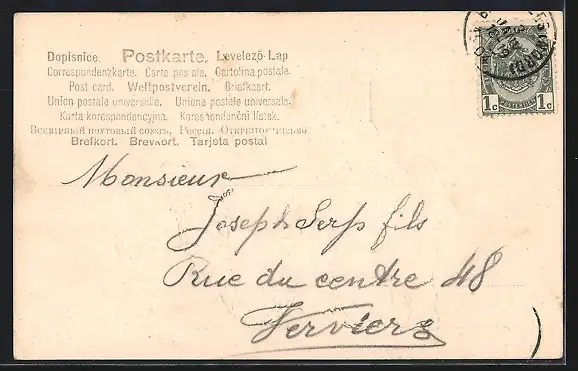 Dopisnice. Postkarte. Levelező-Lap
Correspondenzkarte. Carte postale. Cartolina postale.
Post card. Weltpostverein. Briefkaart.
Union postale universelle. Unione postale universale.
Karta korespondencyjna. Korespondanční lístek.
Всемірный почтовый союзъ. Россія. Открытое письмо
Brefkort. Brevkort. Tarjeta postal
1c 1c
Monsieur
Joseph Serp fils
Rue du centre 48
Verviers